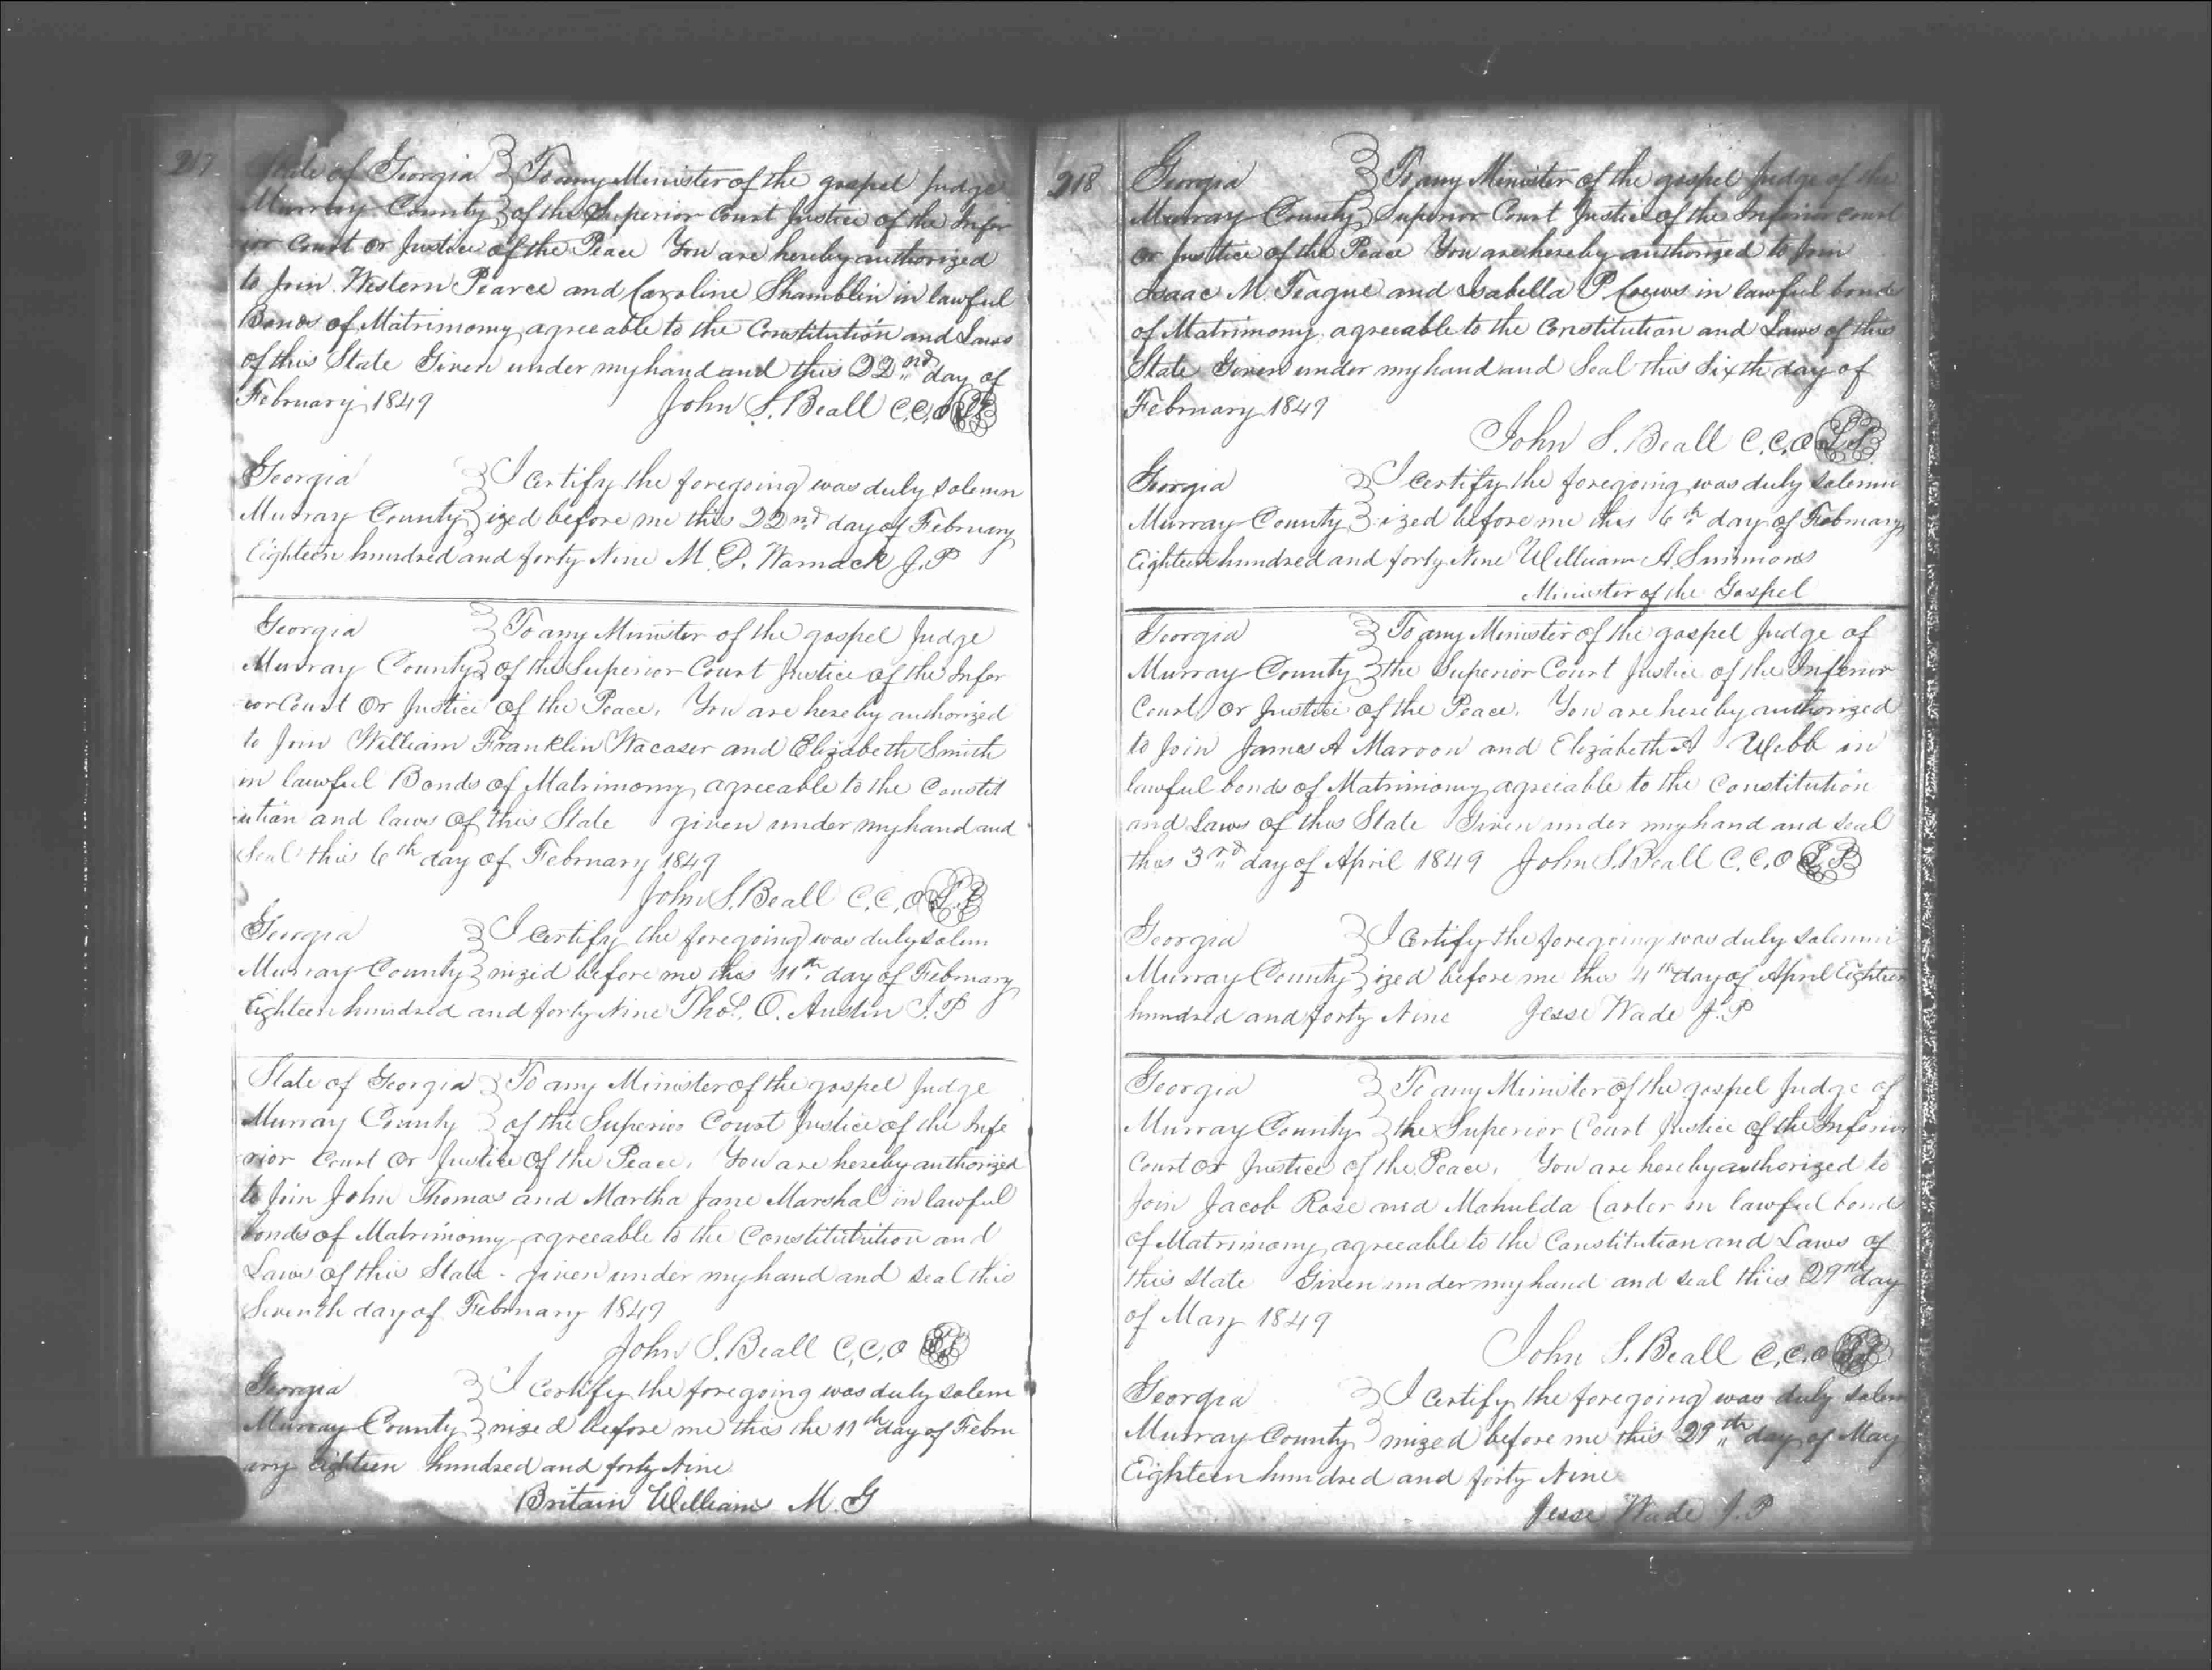 217
State of Georgia } To any Minister of the gospel Judge
Murray County } of the Superior Court Justice of the Infer
ior Court or Justice of the Peace You are hereby authorized
to Join Western Pearce and Caroline Shamblin in lawful
Bonds of Matrimony agreeable to the Constitution and Laws
of this State Given under my hand and this 22nd day of
February 1849 John S. Beall C.C.O L.S
Georgia } I Certify the foregoing was duly solemn
Murray County } ized before me this 22nd day of February
Eighteen hundred and forty Nine M. P. Warnack J.P
Georgia } To any Minister of the gospel Judge
Murray County } of the Superior Court Justice of the Infer
ior Court Or Justice of the Peace. You are hereby authorized
to Join William Franklin Wacaser and Elizabeth Smith
in lawful Bonds of Matrimony agreeable to the Constit
ution and laws of this State given under my hand and
Seal this 6th day of February 1849
John S. Beall C.C.O L.S
Georgia } I Certify the foregoing was duly solem
Murray County } nized before me this 11th day of February
Eighteen hundred and forty Nine Thos. O. Austin J.P
State of Georgia } To any Minister of the gospel Judge
Murray County } of the Superior Court Justice of the Infe
rior Court Or Justice Of the Peace. You are hereby authorized
to Join John Thomas and Martha Jane Marshal in lawful
bonds of Matrimony agreeable to the Constitutution and
Laws of this State - given under my hand and seal this
Seventh day of February 1849
John S. Beall C.C.O L.S
Georgia } I Certify the foregoing was duly solem
Murray County } nized before me this the 11th day of Febru
ary eighteen hundred and forty Nine
Britain Williams M. G
218
Georgia } To any Minister of the gospel Judge of the
Murray County } Superior Court Justice of the Inferior Court
or Justice of the Peace You are hereby authorized to Join
Isaac M. Teague and Isabella P. Crews in lawful bonds
of Matrimony agreeable to the Constitution and Laws of this
State Given under my hand and Seal this Sixth day of
February 1849
John S. Beall C.C.O L.S
Georgia } I Certify the foregoing was duly solemn
Murray County } ized before me this 6th day of February
Eighteen hundred and forty Nine William A. Simmons
Minister of the Gospel
Georgia } To any Minister of the gospel Judge of
Murray County } the Superior Court Justice of the Inferior
Court, or Justice of the Peace. You are hereby authorized
to Join James A Maroon and Elizabeth A Webb in
lawful bonds of Matrimony agreeable to the Constitution
and Laws of this State Given under my hand and seal
this 3rd day of April 1849 John S. Beall C.C.O L.S
Georgia } I Certify the foregoing was duly solemn
Murray County } ized before me this 4th day of April Eighteen
hundred and forty Nine Jesse Wade J.P
Georgia } To any Minister of the gospel Judge of
Murray County } the Superior Court Justice of the Inferior
Court or Justice of the Peace. You are hereby authorized to
Join Jacob Rose and Mahulda Carter in lawful bonds
of Matrimony agreeable to the Constitution and Laws of
this State Given under my hand and seal this 29th day
of May 1849
John S. Beall C.C.O L.S
Georgia } I Certify the foregoing was duly solem
Murray County } nized before me this 29th day of May
Eighteen hundred and forty Nine
Jesse Wade J.P